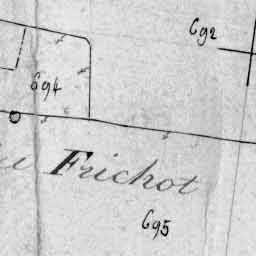 692
694
Frichot
695